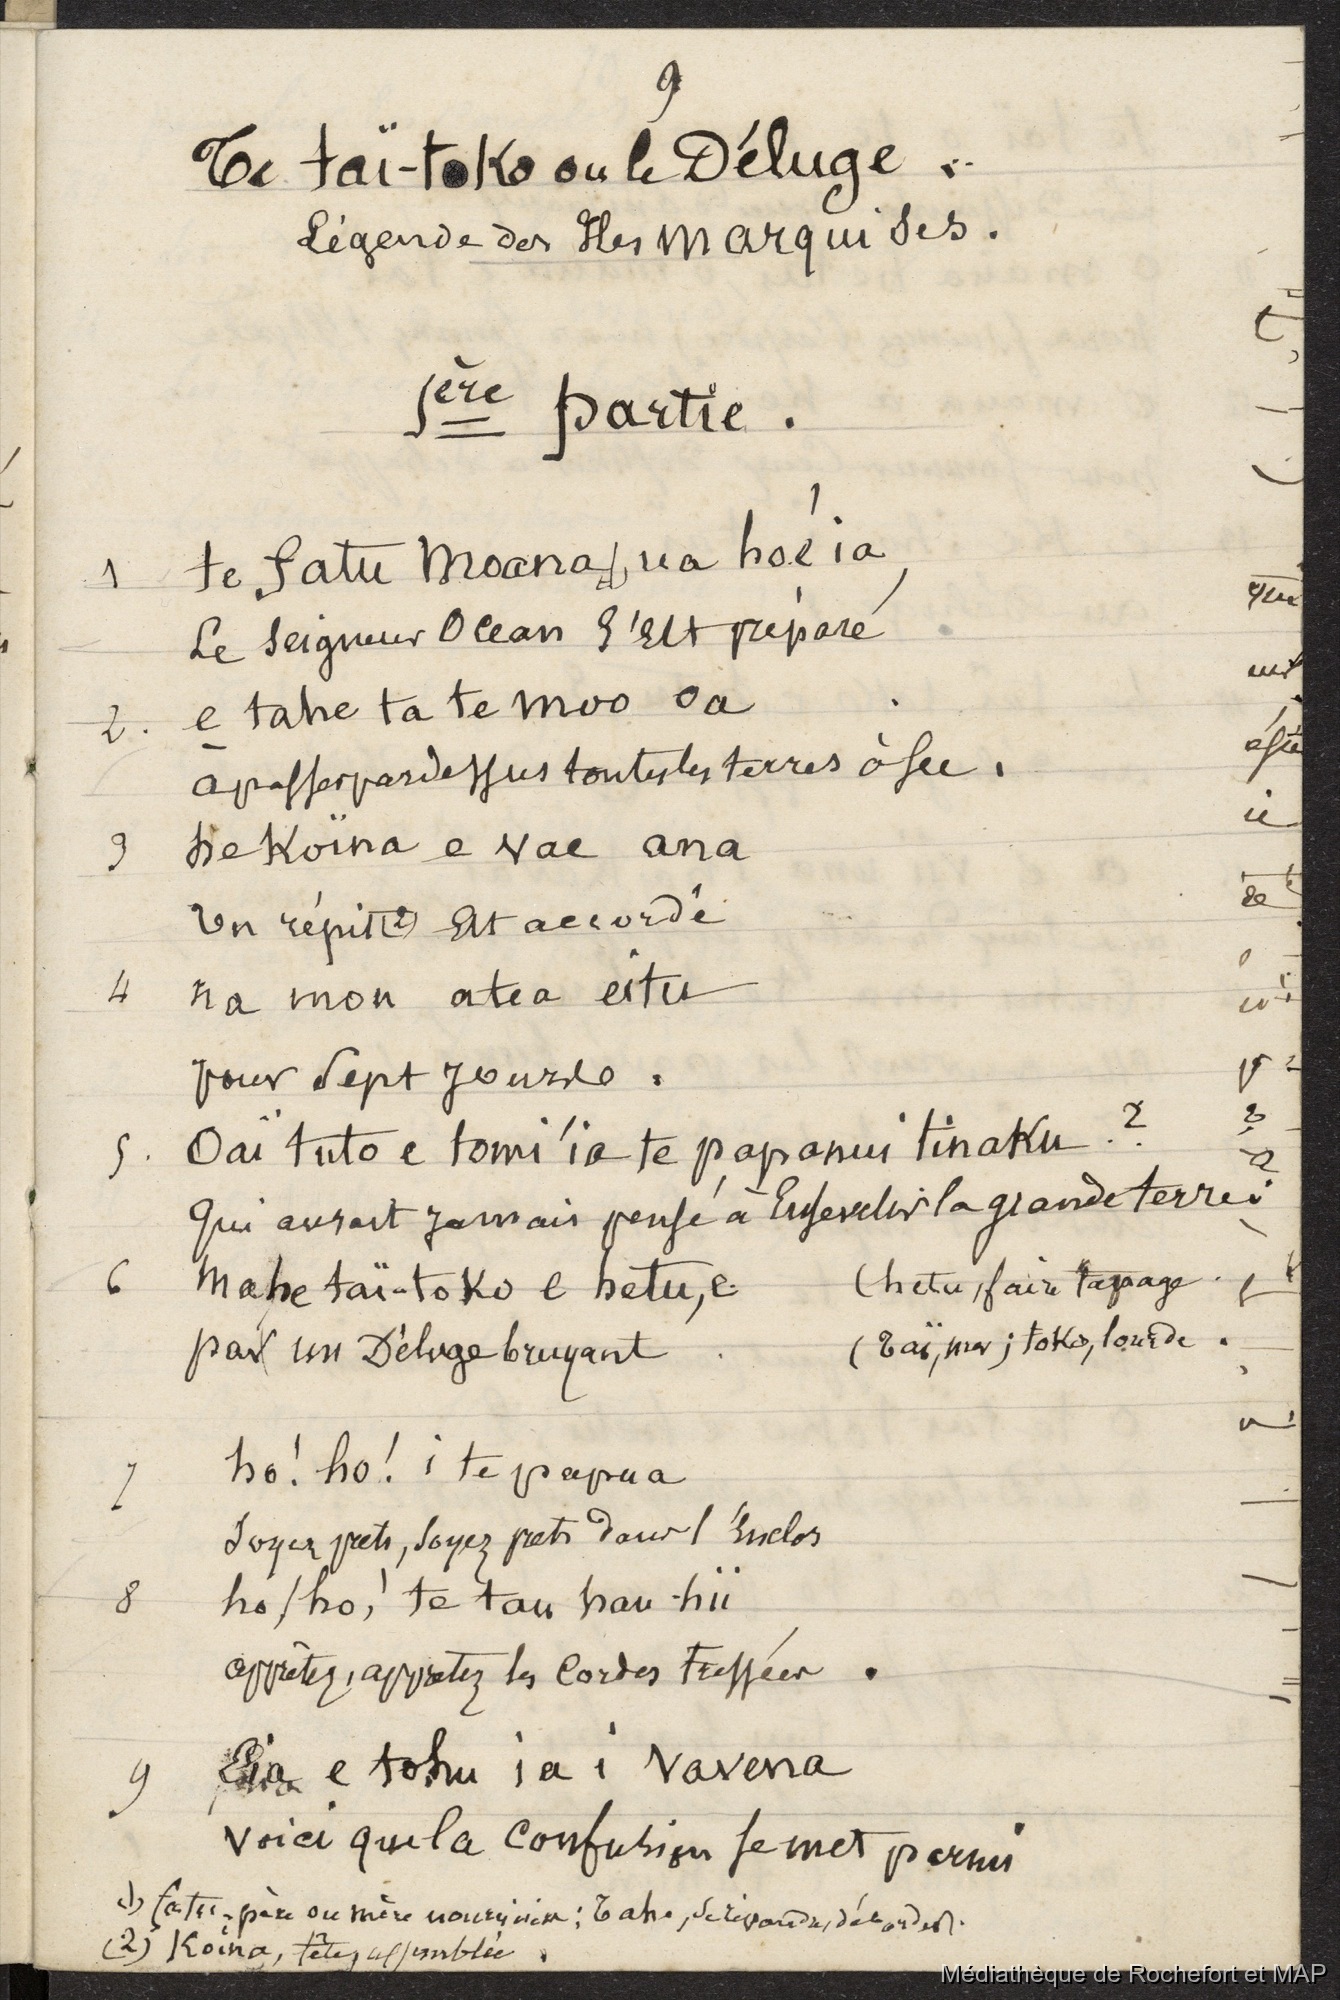 9
Te taï-toko ou le Déluge.
Légende des Iles Marquises.
1ère partie.
1 te fatu Moana, ua hoé ia
Le Seigneur Ocean s'est préparé
2. e tahe ta te moo oa
à passer pardessus toutes les terres à sec.
3 he Koïna e vae ana
Un répit (2) est accordé
4 na mou atea eitu
pour sept jours.
5. Oaï tuto e tomi'ia te papanui tinaku?
Qui aurait jamais pensé à Ensevelir la grande terre
6 Ma he taï-toko e hetu, e (hetu, faire tapage.
par un Déluge bruyant (Taï, mer; toko, lourde.
7 ho! ho! i te papua
Soyez prets, soyez prets dans l'Enclos
8 ho! ho! te tau hau hii
apprêtez, appretez les Cordes tressées.
9 Eia e tohu ia i vavena
voici que la confusion se met parmi
(1) fatu, père ou mère; Tahe, se répandre, déborder.
(2) Koïna, fête, assemblée.
Médiathèque de Rochefort et MAP